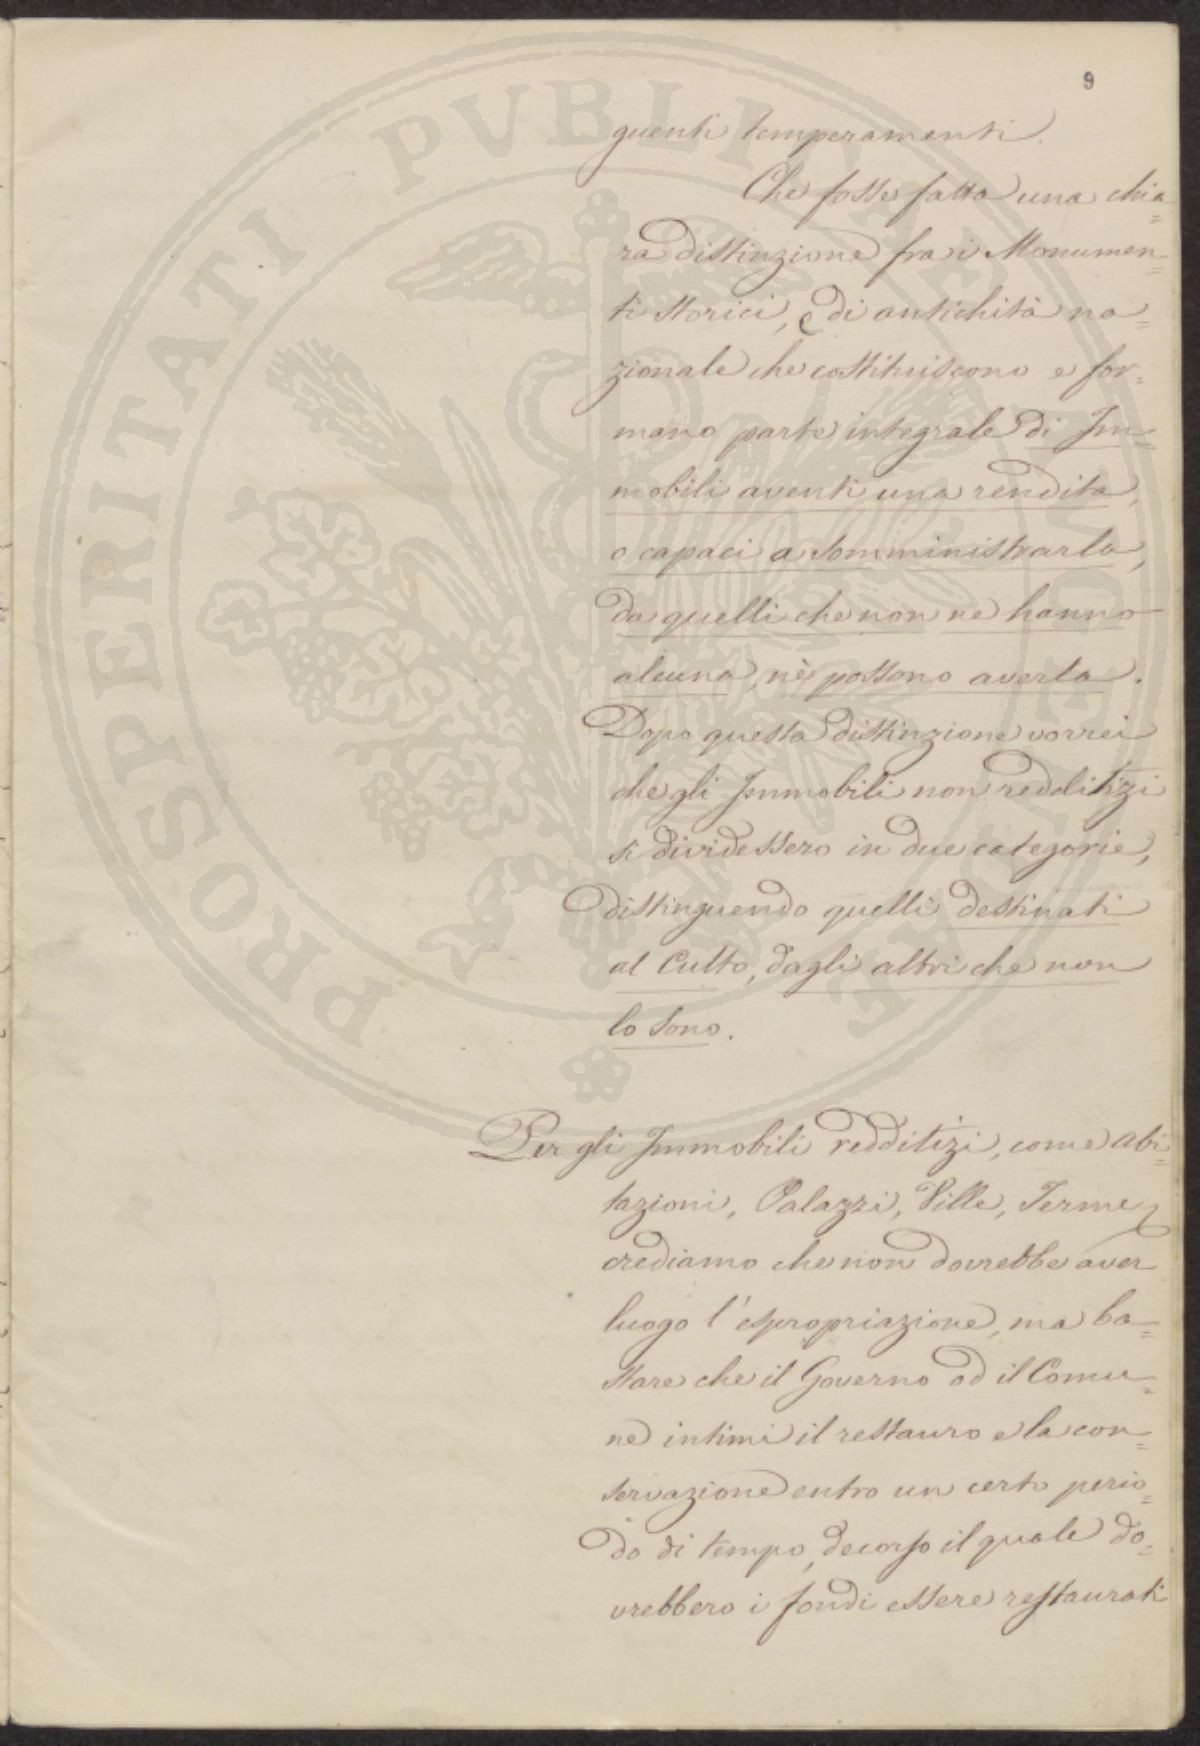 9
guenti temperamenti.
Che fosse fatta una chia=
ra distinzione fra i Monumen=
ti storici, e di antichità na=
zionale che costituiscono e for=
mano parte integrale di Im=
mobili aventi una rendita,
o capaci a somministrarla,
da quelli che non ne hanno
alcuna, nè possono averla.
Dopo questa distinzione vorrei
che gli Immobili non redditizi
si dividessero in due categorie,
distinguendo quelli destinati
al Culto, dagli altri che non
lo sono.
Per gli Immobili redditizi, come abi=
tazioni, Palazzi, Ville, Terme,
crediamo che non dovrebbe aver
luogo l'espropriazione, ma ba=
stare che il Governo od il Comu=
ne intimi il restauro e la con=
servazione entro un certo perio=
do di tempo, decorso il quale do=
vrebbero i fondi essere restaurati
PROSPERITATI PVBLICAE AVGENDAE